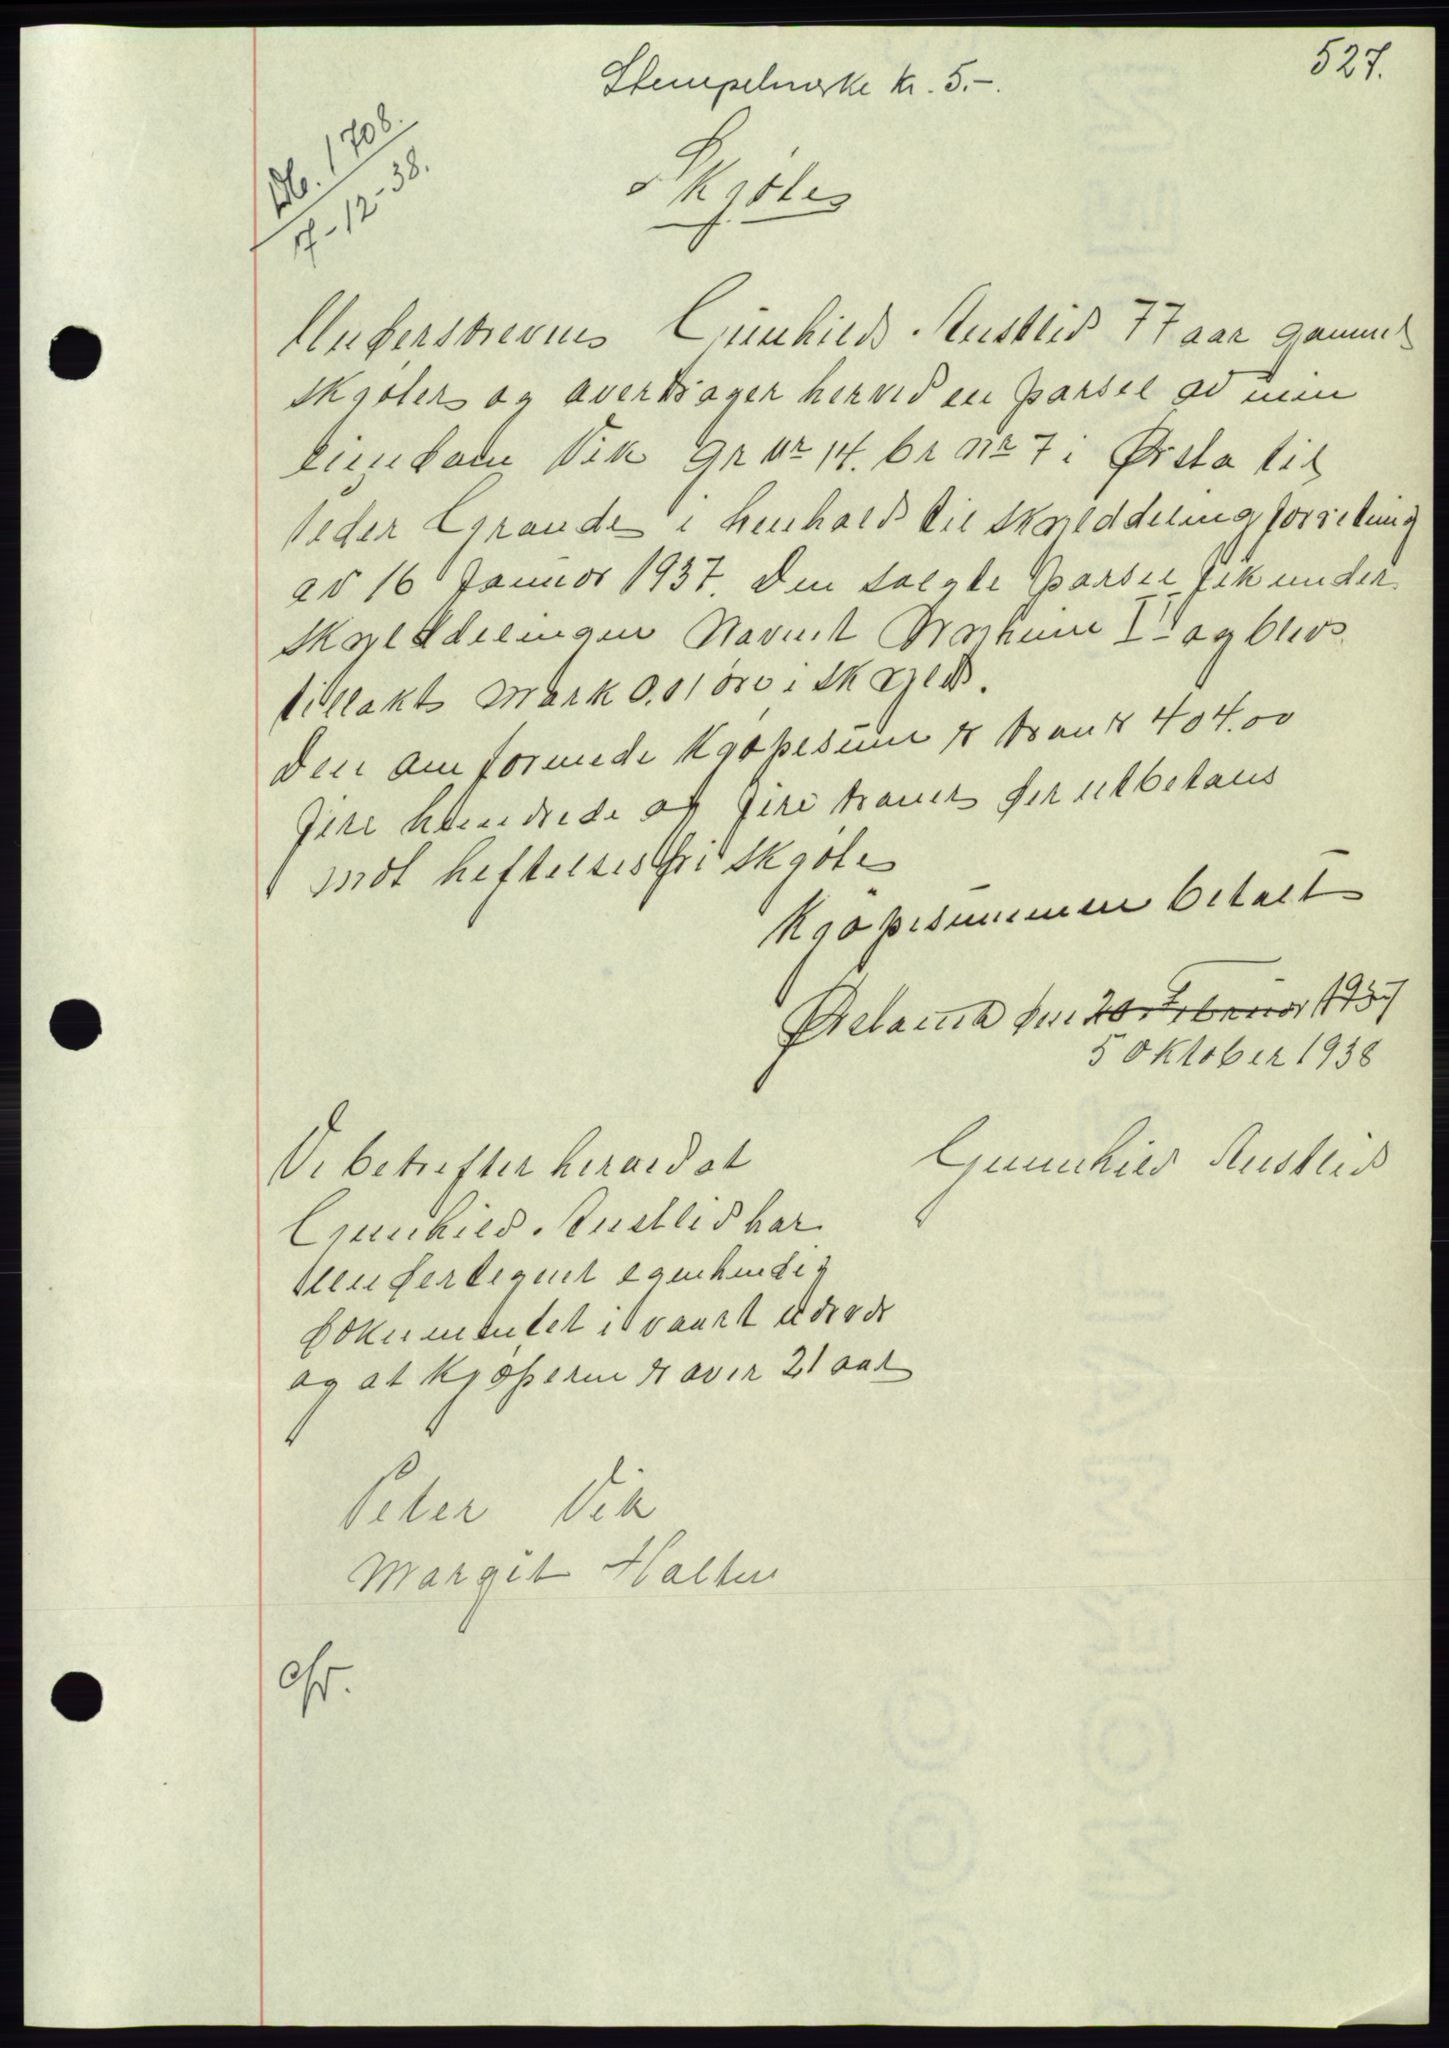 527.
Stempelmerke kr. 5.-.
Db. 1708.
17-12-38.
Skjøte
Underskrevne Gunhild Austlid 77 aar gammel
skjøter og overdrager herved en parsel av min
eiendom Vik gr nr 14. br nr 7 i Ørsta til
Peder Grande i henhold til skylddelingforretning
av 16 Januar 1937. Den solgte parsel fik under
skylddelingen Navnet II og blev
tillakt mark 0.01 øre i skyld.
Den omforenede kjøpesum er kroner 404.00
fire hundrede og fire kroner der utbetales
mot heftelsesfri skjøte
Kjøpesummen betalt
Ørsta den 20. Februar 1937
5 Oktober 1938
Gunnhild Austlid
Vi betrefter herved at
Gunhild Austlid har
undertegnet egenhendig
dokumentet i vaart
og at kjøperen er over 21 aar
Peter Vik
Margit Halten